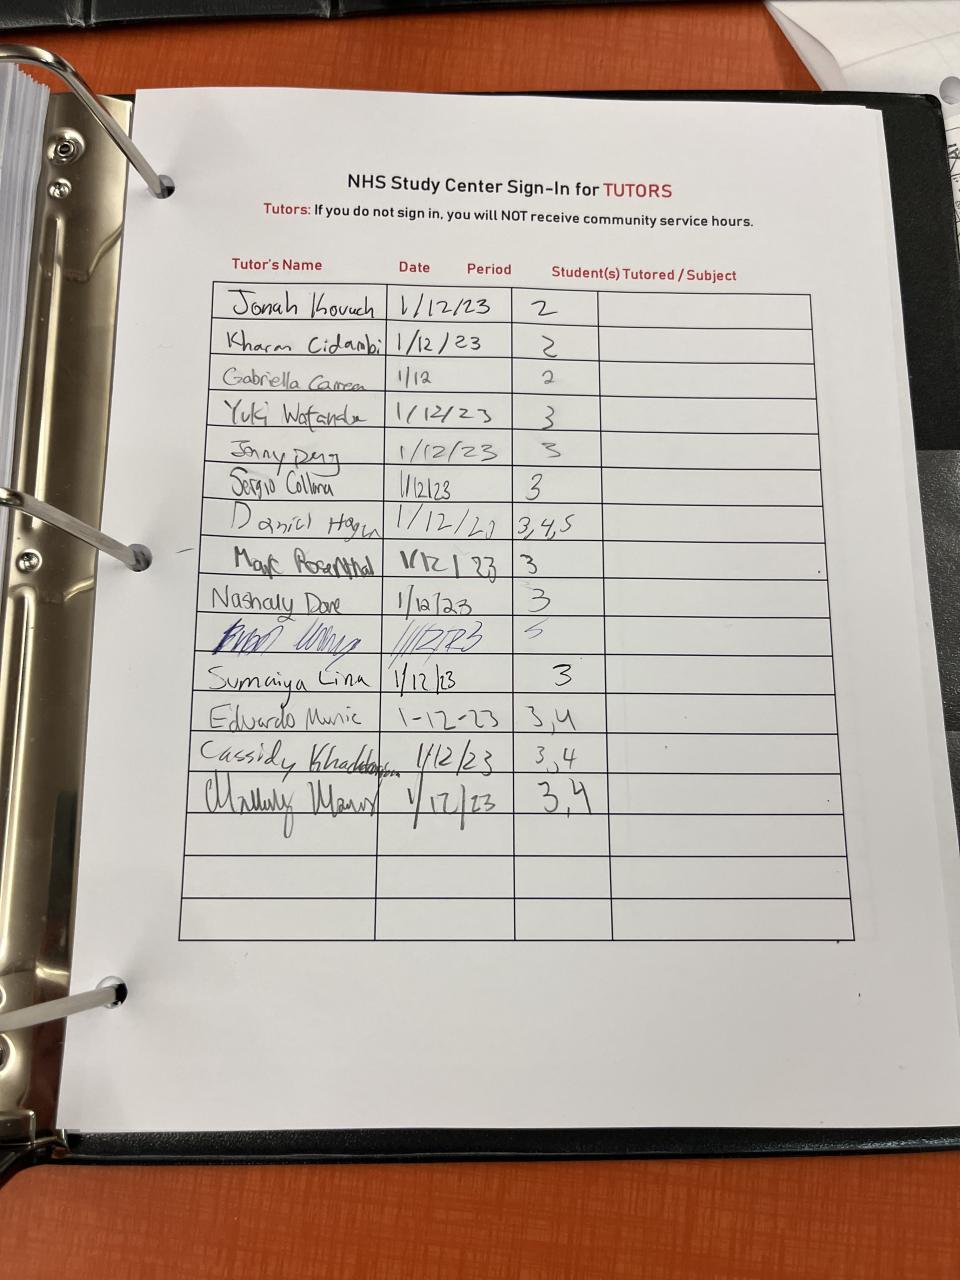 NHS Study Center Sign-In for TUTORS
Tutors: If you do not sign in, you will NOT receive community service hours.
Tutor's Name Date Period Student(s) Tutored / Subject
Jonah Kovach 1/12/23 2
Kharm Cidambi 1/12/23 2
Gabriella 1/12 2
Yuki Watanabe 1/12/23 3
Jenny Deng 1/12/23 3
Sergio Collma 1/12/23 3
Daniel Hogan 1/12/23 3,4,5
Mark Rosenthal 1/12/23 3
Nashaly Dore 1/12/23 3
1/12/23
Sumaiya Lina 1/12/23 3
Eduardo 1-12-23 3,4
Cassidy 1/12/23 3,4
1/12/23 3,4